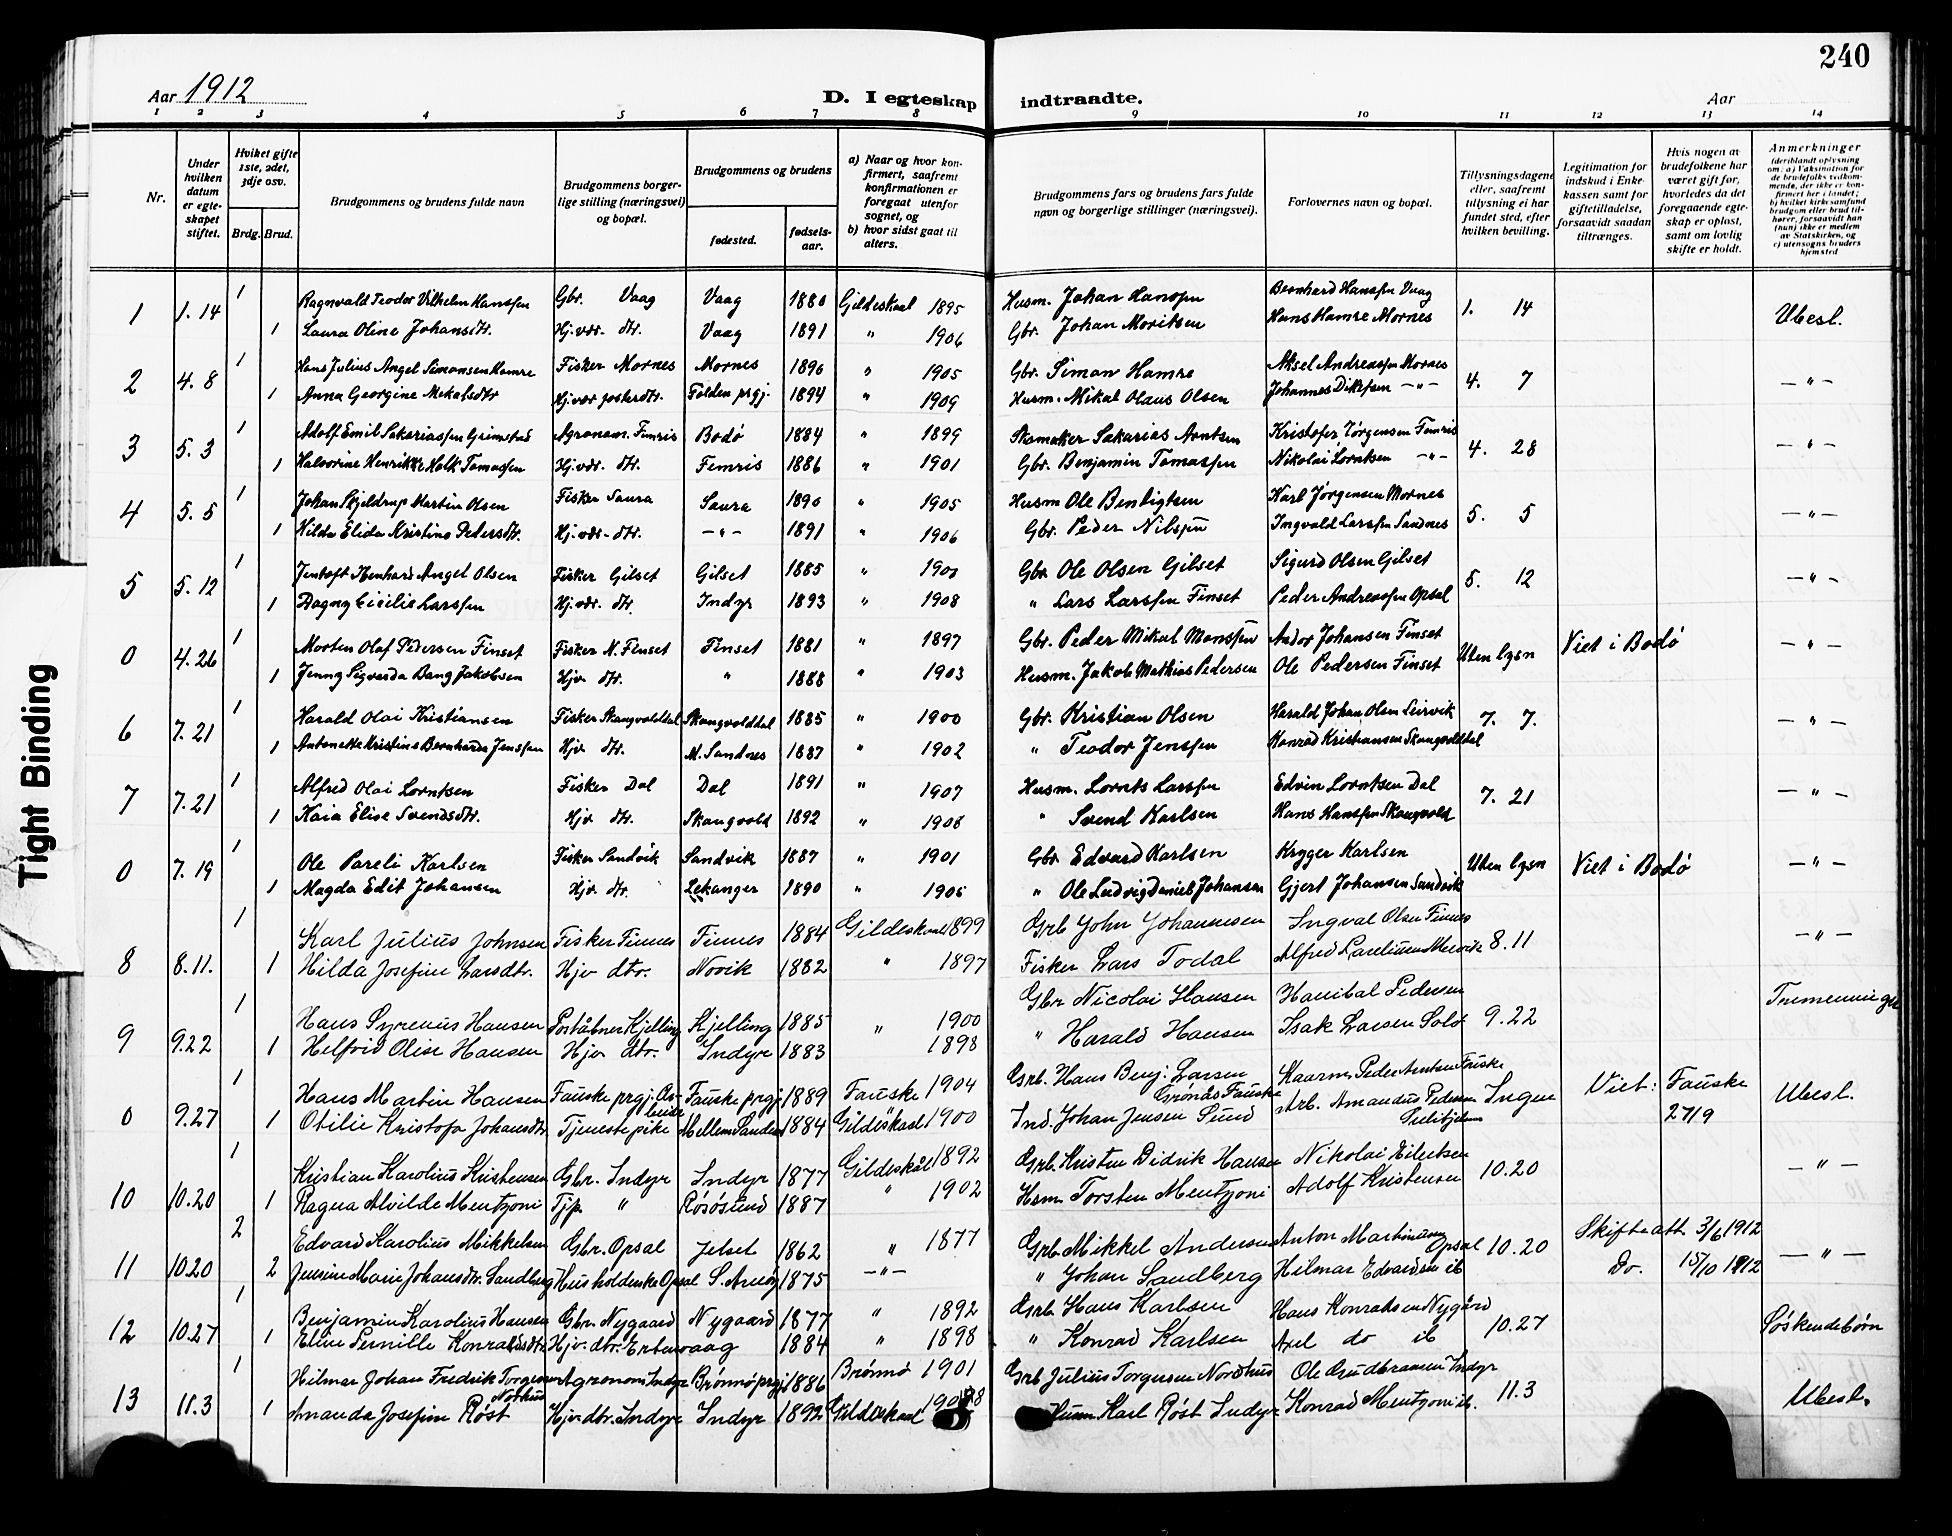 240
Aar 1912
D. I egteskap indtraadte.
Aar
1 2 3 4 5 6 7 8 9 10 11 12 13 14
Nr.
Under hvilken datum er egteskapet stiftet.
Hvilket gifte 1ste, 2det, 3dje osv.
Brdg. Brud.
Brudgommens og brudens fulde navn
Brudgommens borgerlige stilling (næringsvei) og bopæl.
Brudgommens og brudens
fødested. fødselsaar.
a) Naar og hvor konfirmert, saafremt konfirmationen er foregaat utenfor sognet, og b) hvor sidst gaat til alters.
Brudgommens fars og brudens fars fulde navn og borgerlige stillinger (næringsvei).
Forlovernes navn og bopæl.
Tillysningsdagene eller, saafremt tillysning ei har fundet sted, efter hvilken bevilling.
Legitimation for indskud i Enkekassen samt for giftetilladelse, forsaavidt saadan tiltrænges.
Hvis nogen av brudefolkene har været gift før, hvorledes da det foregaaende egteskap er opløst, samt om lovlig skifte er holdt.
Anmerkninger (deriblandt oplysning om: a) Vaksination for de brudefolks vedkommende, der ikke er konfirmert her i landet; b) hvilket kirkesamfund brudgom eller brud tilhører, forsaavidt han (hun) ikke er medlem av Statskirken, og c) utensogns bruders hjemsted
1 1.14 1 Ragnvald Teodor Vilhelm Hanssen Gbr. Vaag Vaag 1880 Gildeskaal 1895 Husm. Johan Hanssen Bernhard Hanssen Vaag 1. 14 Ubesl.
1 Laura Oline Johansdtr. Hj.vær. dtr. Vaag 1891 " 1906 Gbr. Johan Moritsen Hans Hamre Mornes
2 4.8 1 Hans Julius Angel Simonsen Hamre Fisker Mornes Mornes 1890 " 1905 Gbr. Simon Hamre Aksel Andreassen Mornes 4. 7 -"-
1 Anna Georgine Mekalsdtr Hj.vær fosterdtr. Folden prgj. 1894 " 1909 Husm. Mikal Olaus Olsen Johannes Ditlefsen -"-
3 5.3 1 Adolf Emil Sakariassen Grimstad Agronom. Femris Bodø 1884 " 1899 Skomaker Sakarias Arntsen Kristofer Jørgensen Femris 4. 28 -"-
1 Halvorine Henrikke Holk Tomassen Hj.vær. dtr. Femris 1886 " 1901 Gbr. Benjamin Tomassen Nikolai Lorntsen -"-
4 5.5 1 Johan Skjeldrup Martin Olsen Fisker Saura Saura 1890 " 1905 Husm Ole Bentigtsen Karl Jørgensen Mornes 5. 5 -"-
1 Hilda Elida Kristine Pedersdtr. Hj.vær-dtr. -"- 1891 " 1906 Gbr. Peder Nilssen Ingvald Larssen Sandnes
5 5.12 1 Jentoft Angel Olsen Fisker Gilset Gilset 1885 " 1900 Gbr. Ole Olsen Gilset Sigurd Olsen Gilset 5. 12 -"-
1 Dagny Cicilie Larssen Hj.vær. dtr. Indyr 1893 " 1908 " Lars Larssen Finset Peder Andreassen Opsal
0 4.26 1 Morten Olaf Pedersen Finset Fisker N. Finset Finset 1881 " 1897 Gbr. Peder Mikal Monssen Andor Johansen Finset Uten lysn Viet i Bodø -"-
1 Jenny Sigvarda Bang Jakobsen Hjv dtr. " 1888 " 1903 Husm. Jakob Mathias Pedersen Ole Pedersen Finset
6 7.21 1 Harald Olai Kristiansen Fisker Skaugvolddal Skaugvolddal 1885 " 1900 Gbr. Kristian Olsen Harald Johan Olsen Leirvik 7. 7. -"-
1 Antonette Kristine Bernharda Jenssen Hjv dtr. M. Sandnes 1887 " 1902 " Teodor Jenssen Konrad Kristiansen Skaugvolddal
7 7.21 1 Alfred Olai Lorntsen Fisker Dal Dal 1891 " 1907 Husm. Lornts Larssen Edvin Lorntsen Dal 7. 21 -"-
1 Kaia Elise Svendsdtr. Hjv dtr. Skaugvold 1892 " 1908 " Svend Karlsen Hans Hanssen Skaugvold
0 7.19 1 Ole Pareli Karlsen Fisker Sandvik Sandvik 1887 " 1901 Gbr. Edvard Karlsen Kryger Karlsen Uten lysn Viet i Bodø -"-
1 Magda Edit Johansen Hjv. dtr. Lekanger 1890 " 1905 " Ole Ludvig Daniel Johansen Gjert Johansen Sandvik
8 8.11. 1 Karl Julius Johnsen Fisker Finnes Finnes 1884 Gildeskaal 1899 Grb John Johannesen Ingval Olsen Finnes 8.11 -"-
1 Hilda Josefine Larsdtr. Hjv dtr. Novik 1882 " 1897 Fisker Lars Todal Alfred
9 9.22 1 Hans Syrenus Hansen Poståbner Kjelling Kjelling 1885 " 1900 Gbr Nicolai Hansen Hanibal Pedersen 9.22 Tremenninger
1 Helfrid Olise Hansen Hjv dtr. Indyr 1883 1898 " Harald Hansen Isak Larsen Sold
0 9.27 1 Hans Martin Hansen Fauske prgj. Fauske prgj 1889 Fauske 1904 Grb. Hans Benj. Larsen Grønås Fauske Kaarm. Peder Arntsen Fauske Ingen Viet: Fauske 27/9 Ubesl.
1 Otilie Kristofa Johansdtr Tjenestepike Mellem Sandnes 1884 Gildeskaal 1900 Ind. Johan Jensen Sund Arb. Amandus Pedersen Sulitjelma
10 10.20 1 Kristian Karolius Kristensen Gbr. Indyr Indyr 1877 Gildeskål 1892 Grb. Kristen Didrik Hansen Nikolai Eilertsen 10.20 -"-
1 Ragna Alvilde Mentzoni Tjp. " Røsøsund 1887 " 1902 Hsm. Torsten Mentzoni Adolf Kristensen
11 10.20 2 Edvard Karolius Mikkelsen Gbr. Opsal Jelset 1862 " 1877 Grb. Mikkel Andersen Anton Martinussen Opsal 10.20 Skifteatt. 3/6 1912 -"-
2 Jensine Marie Johansdtr. Sandberg Husholderske Opsal S. Arnøy 1875 -"- " Johan Sandberg Hilmar Edvardsen ib Do. 15/10 1912
12 10.27 1 Benjamin Karolius Hansen Gbr. Nygaard Nygaard 1877 " 1892 Grb. Hans Karlsen Hans Konradsen Nygård 10.27 Søskendebørn
1 Eline Pernille Konradsdtr Hjv. dtr. Ertenvaag 1884 " 1898 " Konrad Karlsen Axel do ib
13 11.3 1 Hilmar Johan Fredrik Torgersen Nothus Agronom Indyr Brønnø prgj 1886 Brønnø 1901 Grb Julius Torgersen Nordhus Ole Gudbransen Indyr 11.3 Ubesl.
1 Amanda Josefine Røst Hjv. dtr. Indyr Indyr 1892 Gildeskaal Husm Karl Røst Indyr Konrad Mentzoni ib.
Tight Binding